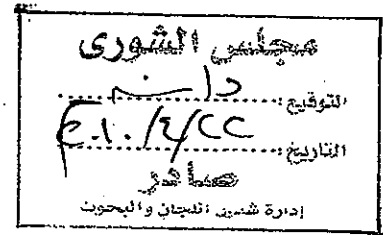 مجلس الشورى
التوقيع:
التاريخ: ٢٠١٠/٤/٢٢م
صادر
إدارة شئون اللجان والبحوث